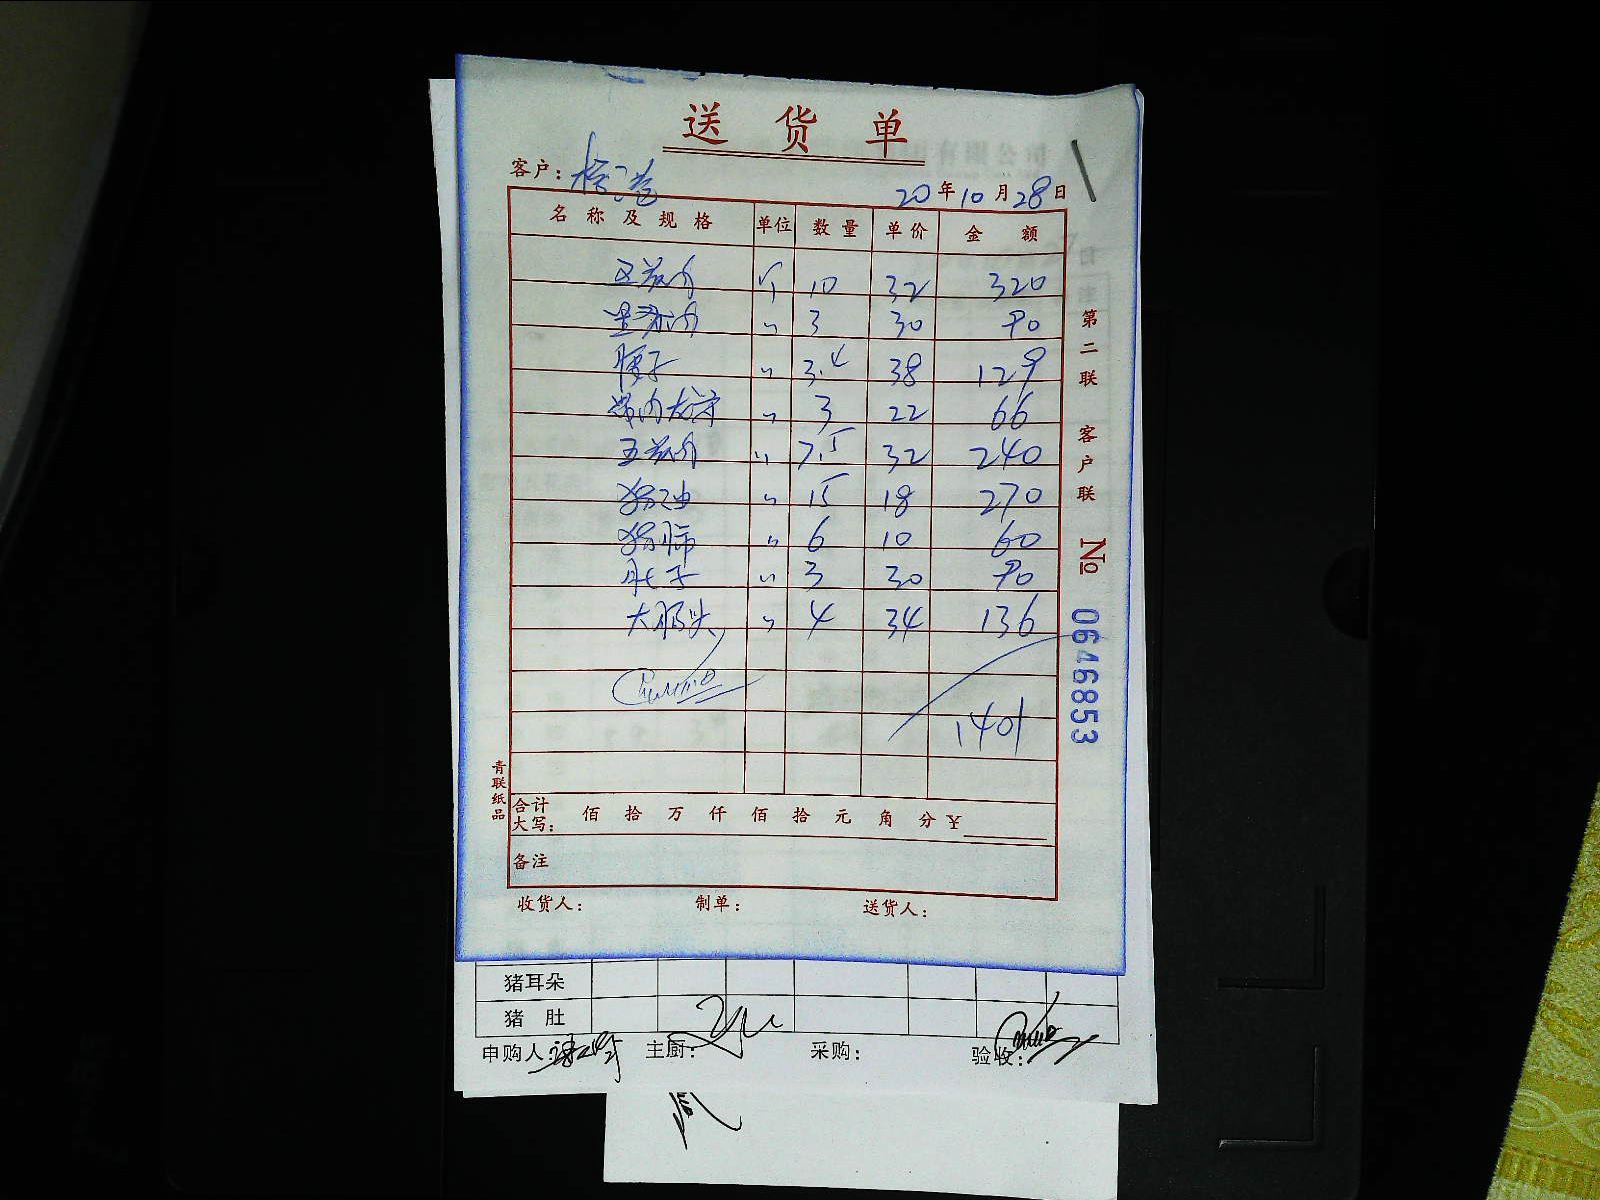 送货单
客户：
20年10月28日
名称及规格 单位 数量 单价 金额
五花肉 斤 10 32 320
里脊肉 〃 3 30 90
腰子 〃 3.4 38 129
带肉龙骨 〃 3 22 66
五花肉 〃 7.5 32 240
猪油 〃 15 18 270
猪肺 〃 6 10 60
肚子 〃 3 30 90
大肠头 〃 4 34 136
1401
合计大写： 佰 拾 万 仟 佰 拾 元 角 分 ¥
备注
收货人： 制单： 送货人：
第二联 客户联 № 0646853
青联纸品
猪耳朵
猪肚
申购人： 主厨： 采购： 验收：